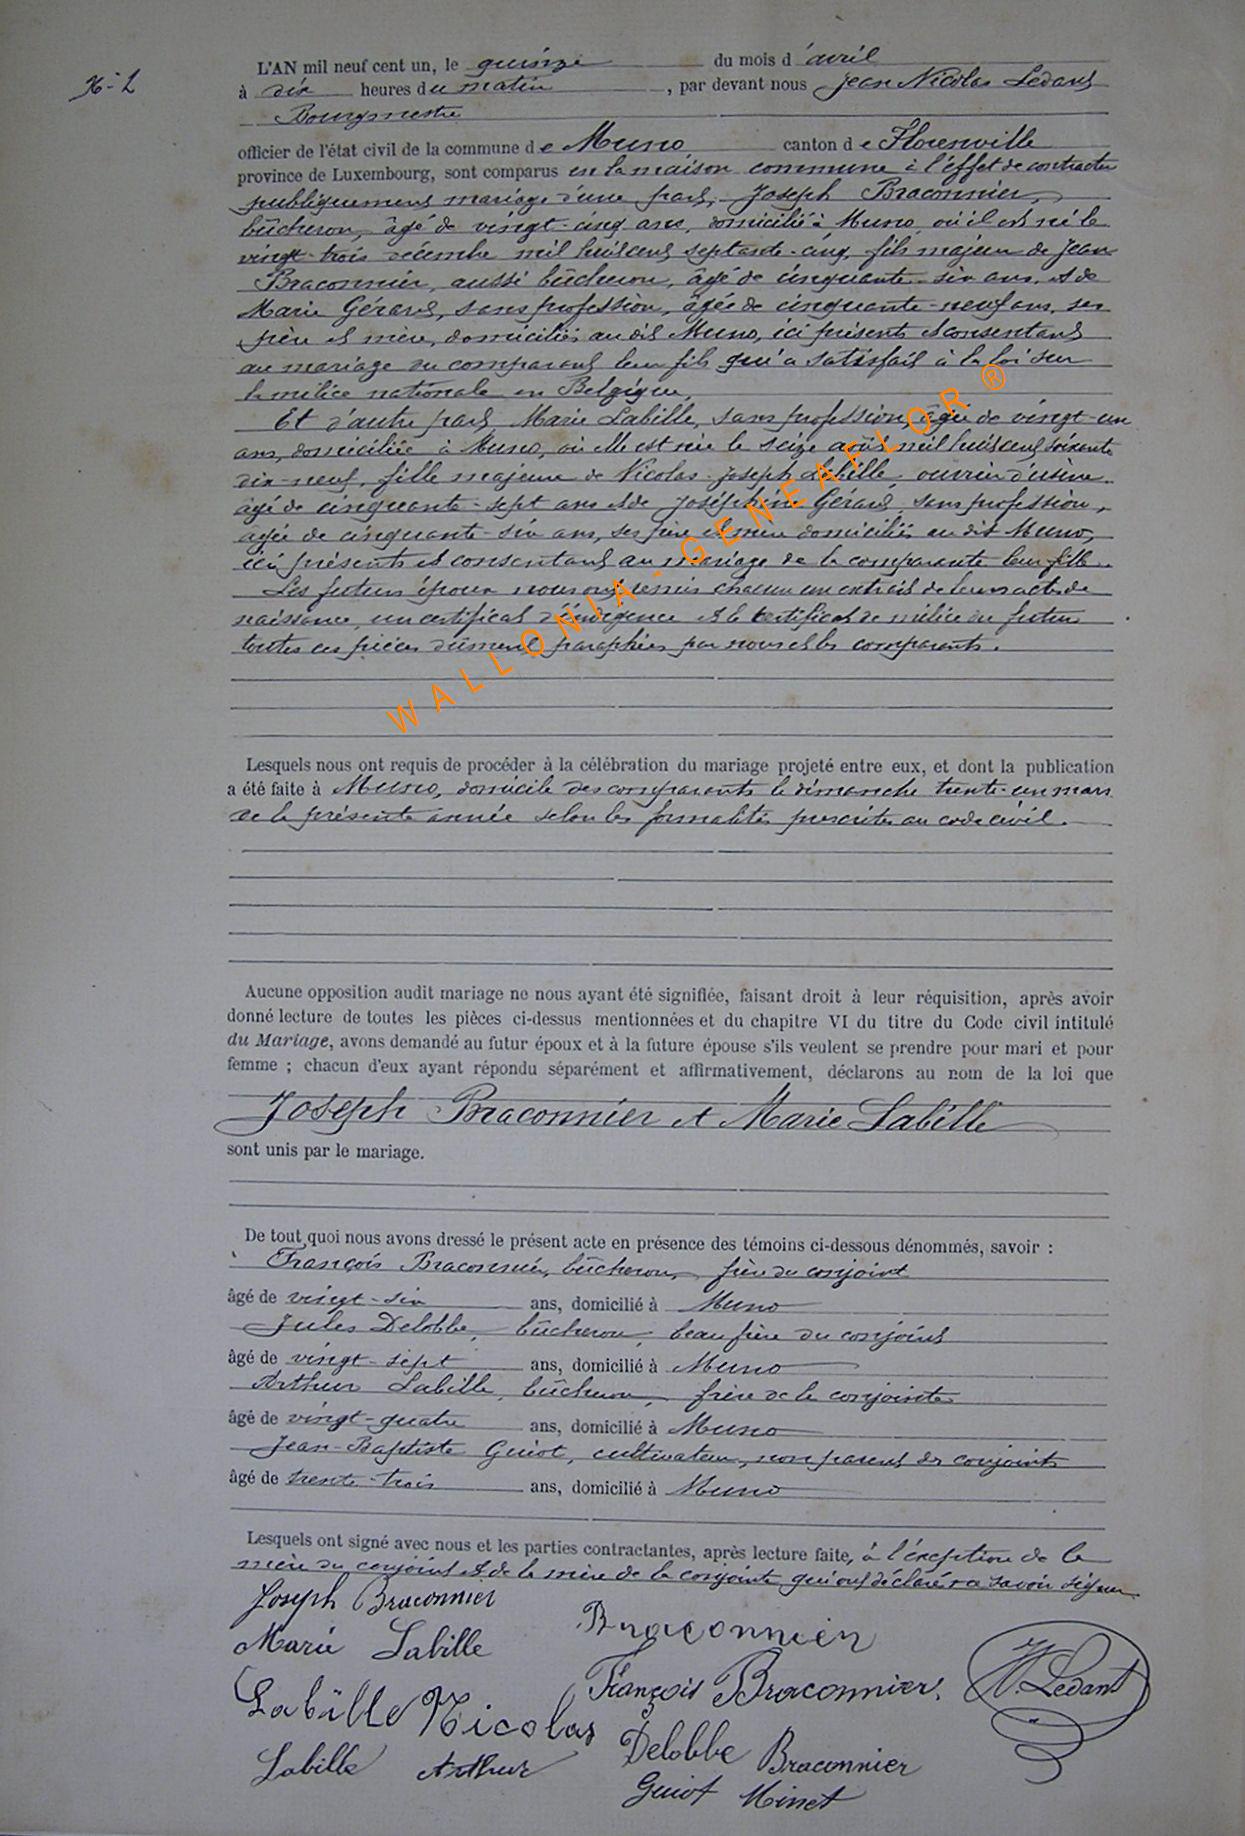 N°- 2
L'AN mil neuf cent un, le quinze du mois d'avril
à dix heures du matin, par devant nous Jean Nicolas Ledant
Bourgmestre
officier de l'état civil de la commune de Muno canton de Florenville
province de Luxembourg, sont comparus en la maison commune à l'effet de contracter
publiquement mariage d'une part, Joseph Braconnier,
bûcheron, âgé de vingt-cinq ans, domicilié à Muno, où il est né le
vingt-trois décembre mil huit cent septante-cinq, fils majeur de Jean
Braconnier, aussi bûcheron, âgé de cinquante-six ans, et de
Marie Gérard, sans profession, âgée de cinquante-neuf ans, ses
père et mère, domiciliés au dit Muno, ici présents et consentant
au mariage du comparant leur fils qui a satisfait à la loi sur
la milice nationale en Belgique,
Et d'autre part, Marie Labille, sans profession, âgée de vingt-un
ans, domiciliée à Muno, où elle est née le seize août mil huit cent soixante
dix-neuf, fille majeure de Nicolas-Joseph Labille, ouvrier d'usine
âgé de cinquante-sept ans et de Joséphine Gérard, sans profession,
âgée de cinquante-six ans, ses père et mère domiciliés au dit Muno,
ici présents et consentant au mariage de la comparante leur fille.
Les futurs époux nous ont remis chacun un extrait de leur acte de
naissance, un certificat d'indigence et le certificat de milice du futur
toutes ces pièces dûment paraphées par nous et les comparants.
WALLONIA - GENEAFLOR ®
Lesquels nous ont requis de procéder à la célébration du mariage projeté entre eux, et dont la publication
a été faite à Muno, domicile des comparants le dimanche trente-un mars
de la présente année selon les formalités prescrites au code civil.
Aucune opposition audit mariage ne nous ayant été signifiée, faisant droit à leur réquisition, après avoir
donné lecture de toutes les pièces ci-dessus mentionnées et du chapitre VI du titre du Code civil intitulé
du Mariage, avons demandé au futur époux et à la future épouse s'ils veulent se prendre pour mari et pour
femme ; chacun d'eux ayant répondu séparément et affirmativement, déclarons au nom de la loi que
Joseph Braconnier et Marie Labille
sont unis par le mariage.
De tout quoi nous avons dressé le présent acte en présence des témoins ci-dessous dénommés, savoir :
François Braconnier, bûcheron, frère du conjoint
âgé de vingt-six ans, domicilié à Muno
Jules Delobbe, bûcheron, beau frère du conjoint
âgé de vingt-sept ans, domicilié à Muno
Arthur Labille, bûcheron, frère de la conjointe
âgé de vingt-quatre ans, domicilié à Muno
Jean-Baptiste Guiot, cultivateur, non parent des conjoints
âgé de trente-trois ans, domicilié à Muno
Lesquels ont signé avec nous et les parties contractantes, après lecture faite, à l'exception de la
mère du conjoint et de la mère de la conjointe qui ont déclaré ne savoir signer
Joseph Braconnier
Braconnier
Marie Labille
François Braconnier.
N. Ledant
Labille Nicolas
Delobbe Braconnier
Labille Arthur
Guiot Minet